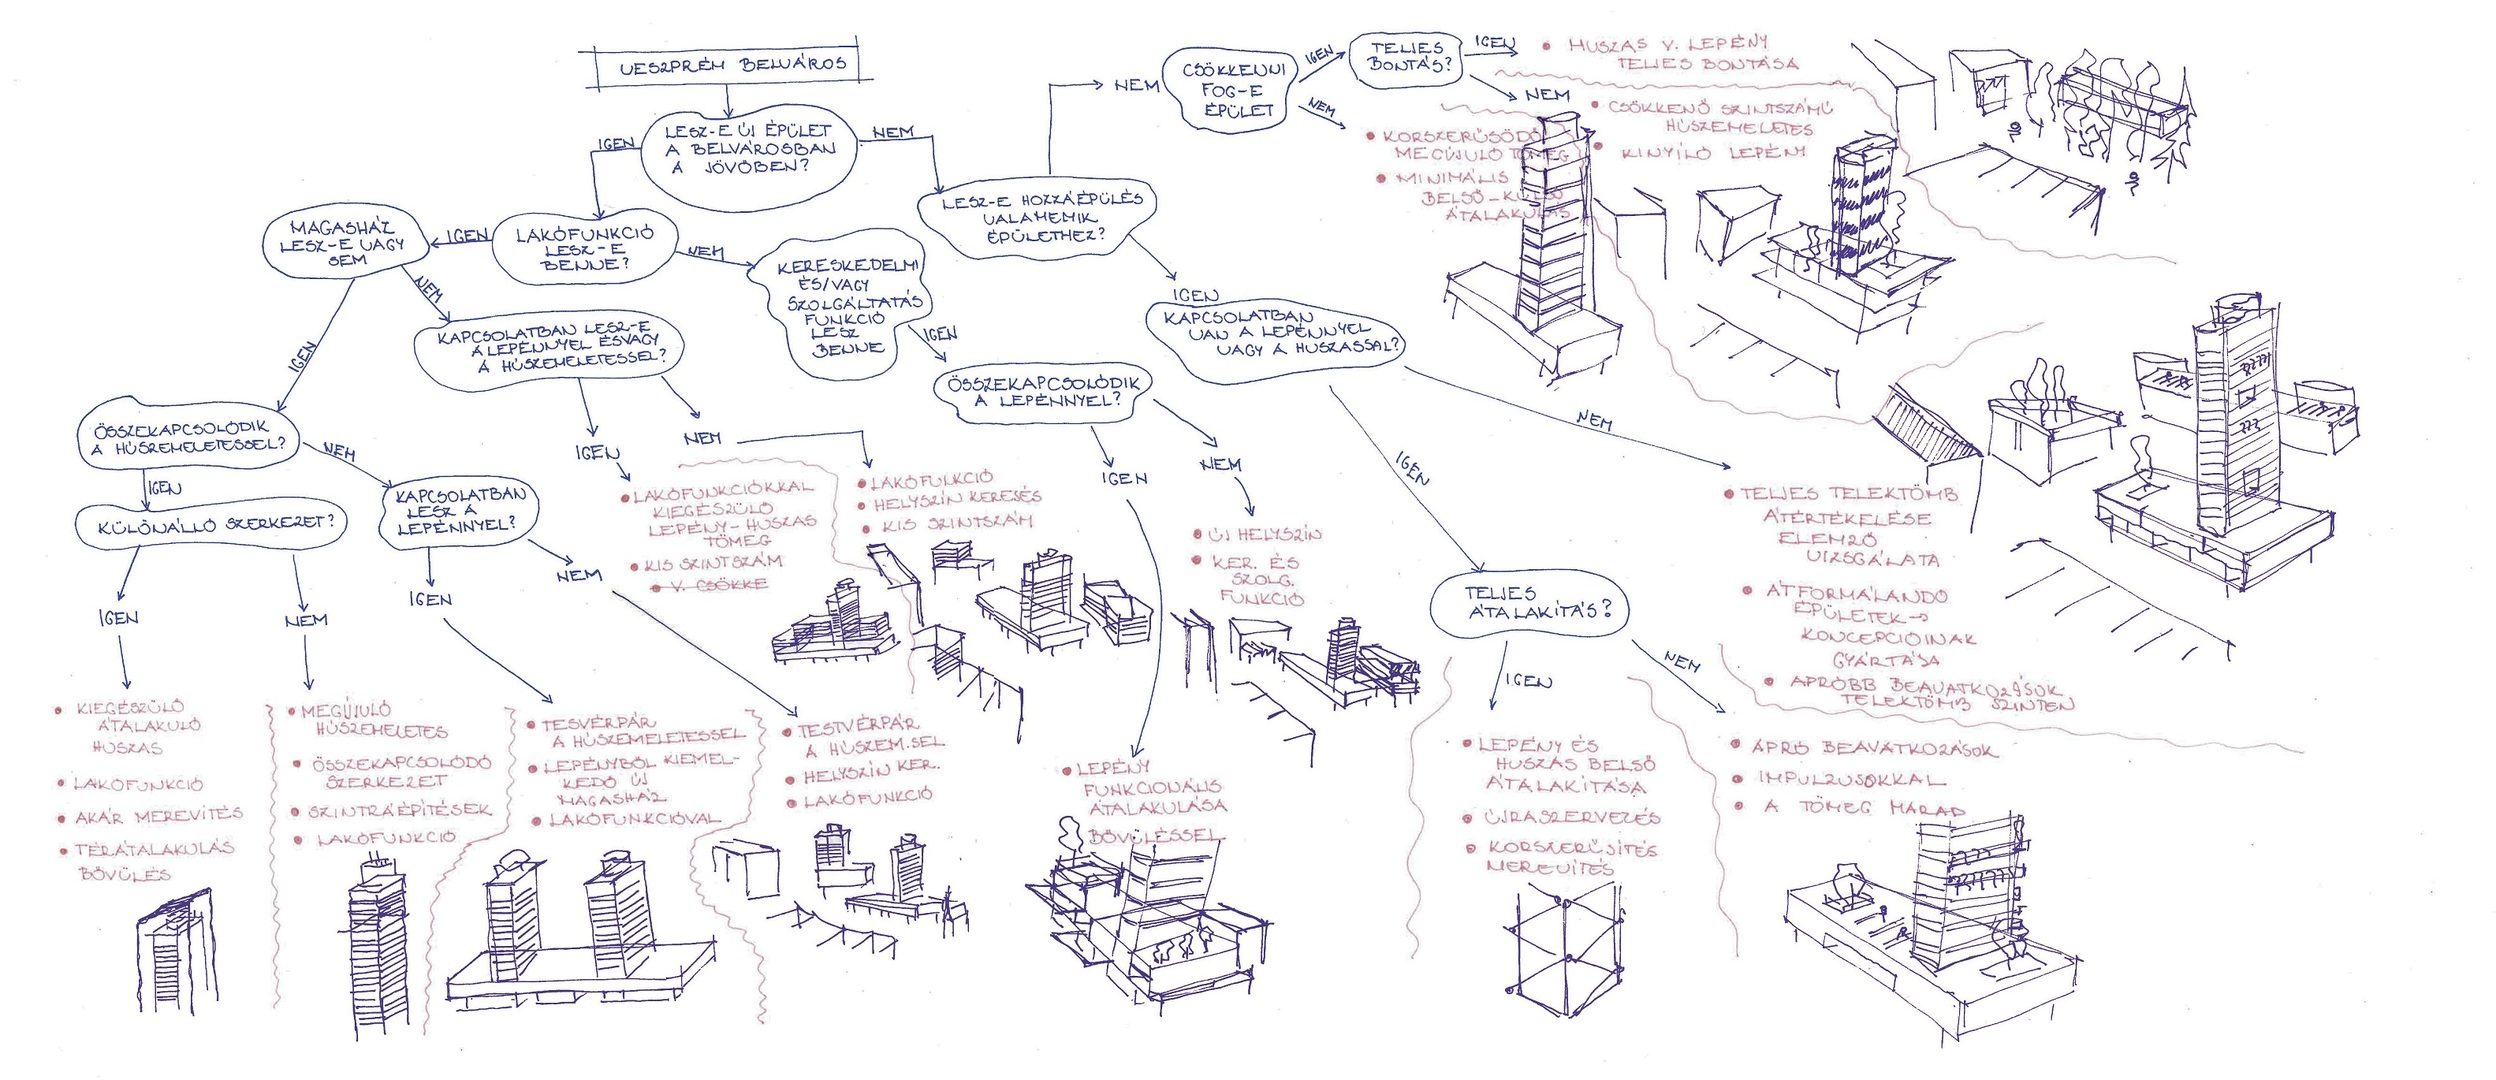 VESZPRÉM BELVÁROS
LESZ-E ÚJ ÉPÜLET
A BELVÁROSBAN
A JÖVŐBEN?
IGEN
NEM
LAKÓFUNKCIÓ
LESZ-E
BENNE?
IGEN
NEM
MAGASHÁZ
LESZ-E VAGY
SEM
NEM
IGEN
KAPCSOLATBAN LESZ-E
A LEPÉNNYEL ÉSVAGY
A HÚSZEMELETESSEL?
IGEN
NEM
KERESKEDELMI
ÉS/VAGY
SZOLGÁLTATÁS
FUNKCIÓ
LESZ
BENNE
IGEN
ÖSSZEKAPCSOLÓDIK
A LEPÉNNYEL?
IGEN
NEM
LESZ-E HOZZÁÉPÜLÉS
VALAMEMIK
ÉPÜLETHEZ?
NEM
IGEN
CSÖKKENNI
FOG-E
ÉPÜLET
IGEN
NEM
TELJES
BONTÁS?
IGEN
NEM
• HUSZAS V. LEPÉNY
TELJES BONTÁSA
• CSÖKKENŐ SZINTSZÁMÚ
HÚSZEMELETES
• KINYÍLÓ LEPÉNY
• KORSZERŰSÖDŐ
MEGÚJULÓ TÖMEG
• MINIMÁLIS
BELSŐ-KÜLSŐ
ÁTALAKULÁS
KAPCSOLATBAN
VAN A LEPÉNNYEL
VAGY A HUSZASSAL?
NEM
IGEN
• TELJES TELEKTÖMB
ÁTÉRTÉKELÉSE
ELEMZŐ
VIZSGÁLATA
• ÁTFORMÁLANDÓ
ÉPÜLETEK→
KONCEPCIÓINAK
GYÁRTÁSA
• APRÓBB BEAVATKOZÁSOK
TELEKTÖMB SZINTEN
TELJES
ÁTALAKÍTÁS?
IGEN
NEM
• LEPÉNY ÉS
HUSZAS BELSŐ
ÁTALAKÍTÁSA
• ÚJRASZERVEZÉS
• KORSZERŰSÍTÉS
MEREVÍTÉS
• APRÓ BEAVATKOZÁSOK
• IMPULZUSOKKAL
• A TÖMEG MARAD
ÖSSZEKAPCSOLÓDIK
A HÚSZEMELETESSEL?
IGEN
NEM
KÜLÖNÁLLÓ SZERKEZET?
IGEN
NEM
KAPCSOLATBAN
LESZ A
LEPÉNNYEL?
IGEN
NEM
• LAKÓFUNKCIÓKKAL
KIEGÉSZÜLŐ
LEPÉNY-HUSZAS
TÖMEG
• KIS SZINTSZÁM
• V. CSÖKKE
• LAKÓFUNKCIÓ
• HELYSZÍN KERESÉS
• KIS SZINTSZÁM
• ÚJ HELYSZÍN
• KER. ÉS
SZOLG.
FUNKCIÓ
• KIEGÉSZÜLŐ
ÁTALAKULÓ
HUSZAS
• LAKÓFUNKCIÓ
• AKÁR MEREVÍTÉS
• TÉRÁTALAKULÁS
BŐVÜLÉS
• MEGÚJULÓ
HÚSZEMELETES
• ÖSSZEKAPCSOLÓDÓ
SZERKEZET
• SZINTRÁÉPÍTÉSEK
• LAKÓFUNKCIÓ
• TESVÉRPÁR
A HÚSZEMELETESSEL
• LEPÉNYBŐL KIEMEL-
KEDŐ ÚJ
MAGASHÁZ
• LAKÓFUNKCIÓVAL
• TESTVÉRPÁR
A HÚSZEM.SEL
• HELYSZÍN KER.
• LAKÓFUNKCIÓ
• LEPÉNY
FUNKCIONÁLIS
ÁTALAKULÁSA
BŐVÜLÉSSEL